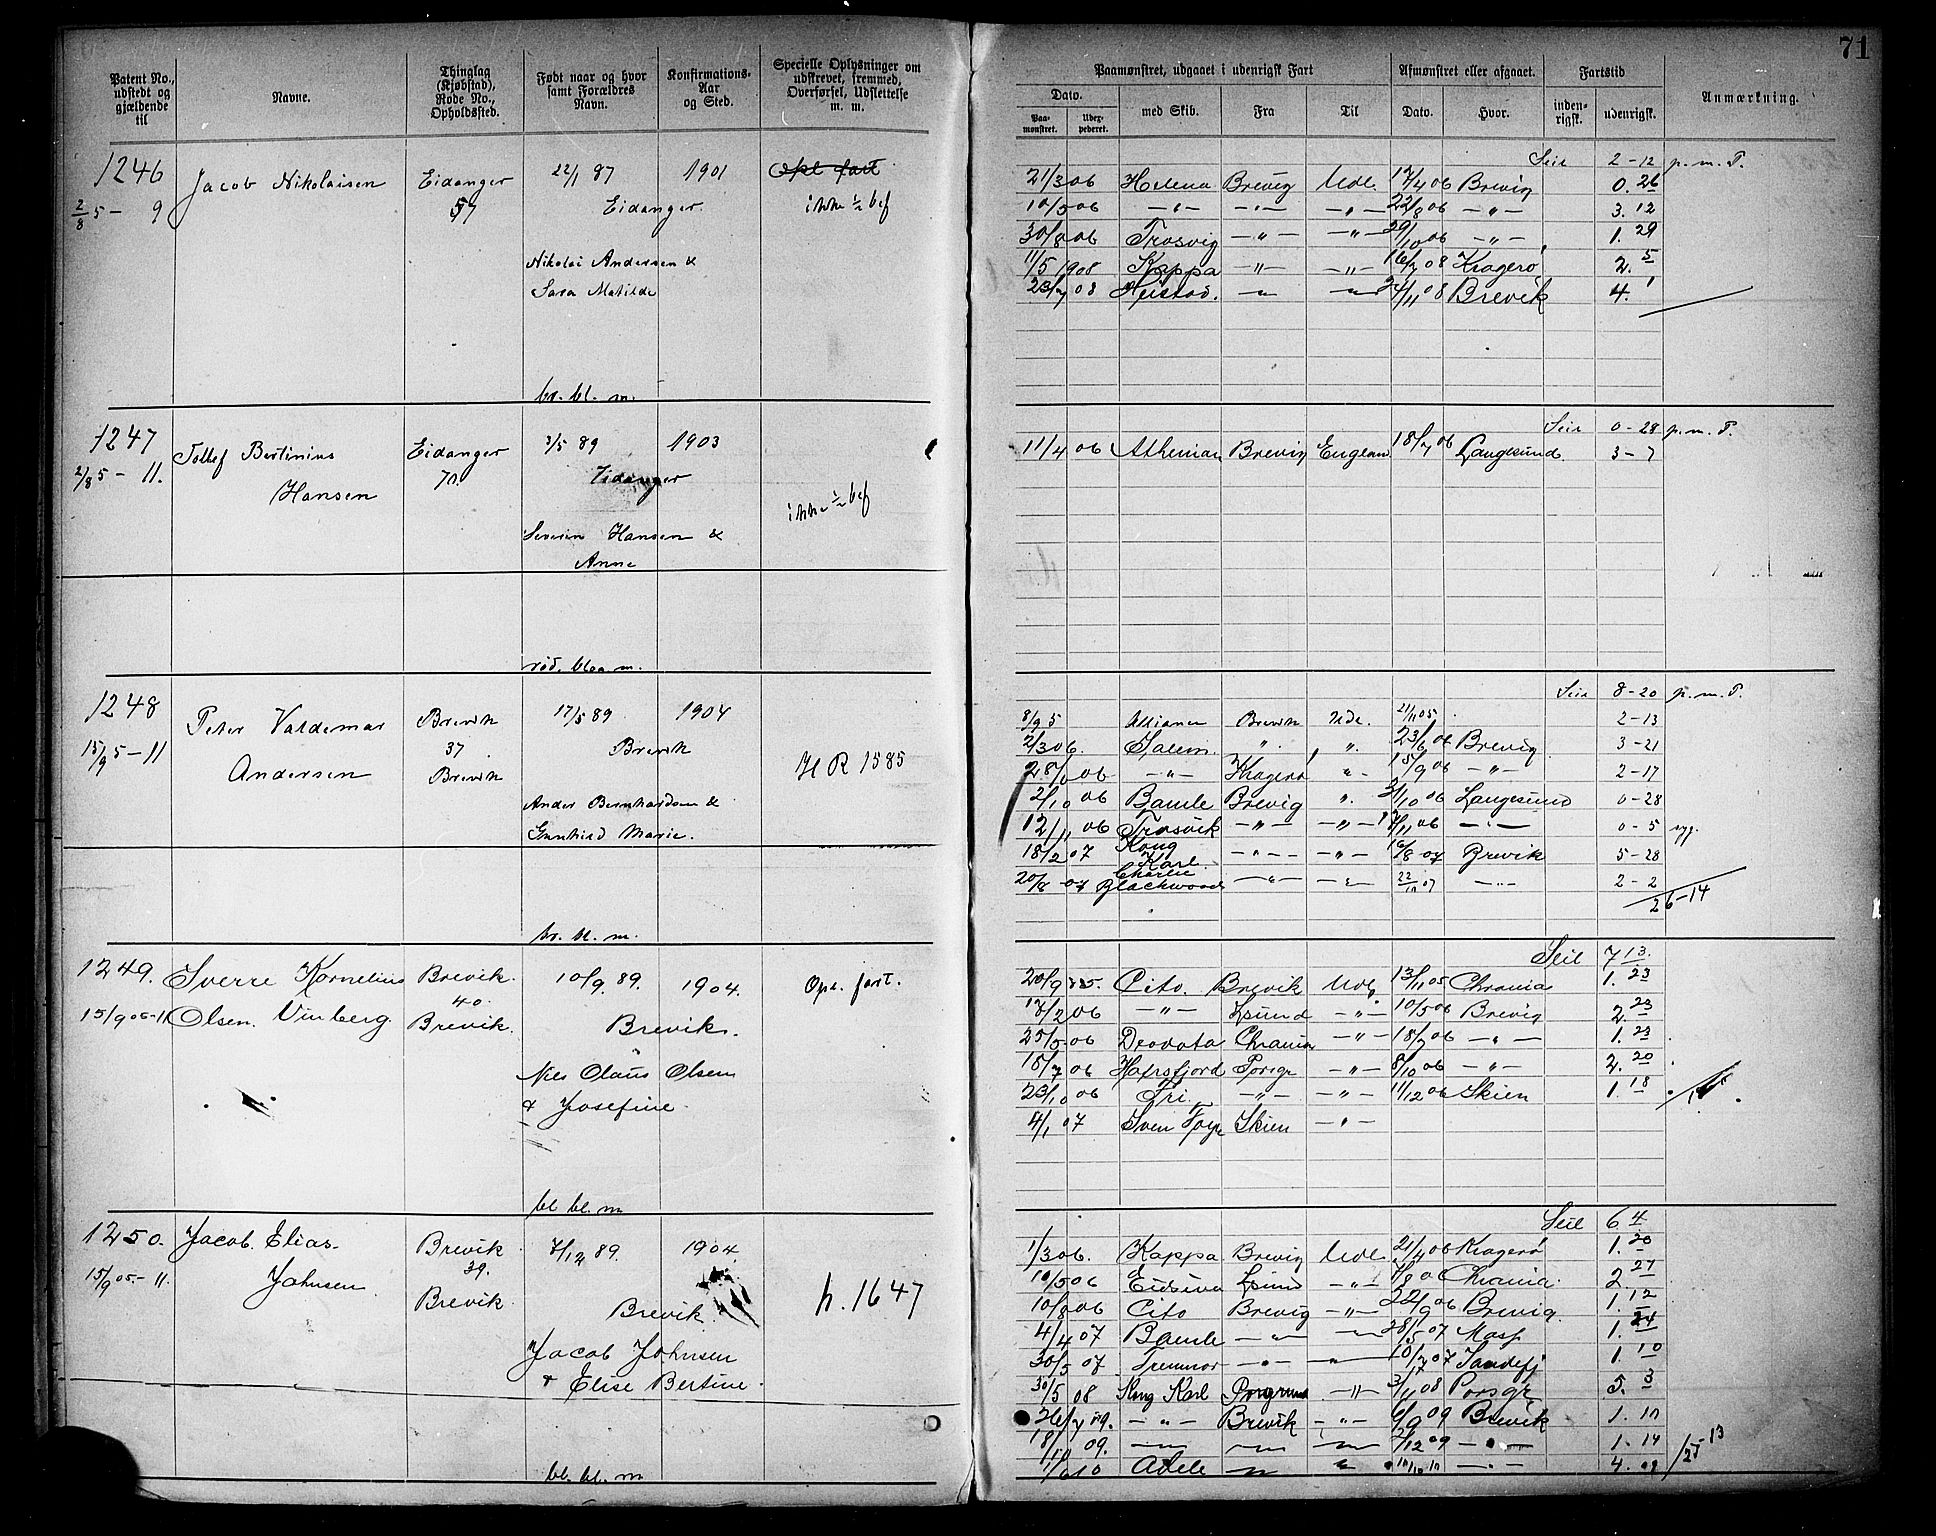 71
Patent No., udstedt og gjældende til
Navne.
Thinglag (Kjøbstad), Rode No., Opholdssted.
Født naar og hvor samt Forældres Navn.
Konfirmations- Aar og Sted.
Specielle Oplysninger om udskrevet, fremmed, Overførsel, Udslettelse m. m.
Paamønstret, udgaaet i udenrigsk Fart
Afmønstret eller afgaaet.
Fartstid
Anmærkning.
Dato.
med Skib.
Fra
Til
Dato.
Hvor.
inden- rigsk.
udenrigsk.
Paa- mønstret.
Udex- pederet.
1246 Jacob Nikolaisen Eidanger 22/1 87 1901 Opl fart
2/8 5 - 9 57 Eidanger ikke ½ bef
Nikolai Andersen &
Sara Matilde
br. bl. m.
Seil 2-12 p. m. P.
21/3 06 Helena Brevig Udl. 17/4 06 Brevig 0. 26
10/5 06 -"- -"- -"- 22/8 06 -"- 3. 12
30/8 06 Trosvig -"- -"- 29/10 06 -"- 1. 29
11/5 1908 Kappa -"- -"- 16/7 08 Kragerø 2. 5
23/7 08 Heistad. -"- -"- 24/11 08 Brevik 4. 1
1247 Tollef Bertinius Eidanger 3/5 89 1903
2/8 5 - 11. Hansen 70. Eidanger
ikke ½ bef
Severin Hansen &
Anne
rød. blaa. m.
Seil 0-28 p. m. P.
11/4 06 Athenian Brevig Englan 18/7 06 Langesund. 3-7
1248 Peter Valdemar Brevik 17/5 89 1904
15/9 5 - 11 Andersen 37 Brevik
Brevik H R 1585
Ander Bernhardsen &
Gunhild Marie.
br. bl. m.
Seil 8-20 p. m. P.
8/9 5 Alliance Brevik Udl. 21/11 05 2-13
2/3 06. Salem. " " 23/6 06 Brevig 3-21
28/6 06 -"- Kragerø " 15/9 06 -"- 2-17
2/10 06 Bamle Brevig " 31/10 06 Langesund 0-28
12/11 06 Trosvik -"- -"- 17/11 06 -"- 0-5 syg.
18/2 07 Kong Karl -"- -"- 16/8 07 Brevik 5-28
20/8 07 Charlie Blackwood -"- -"- 22/10 07 -"- 2-2
26-14
1249. Sverre Kornelius Brevik. 10/9. 89. 1904. Opl. fart.
15/9 05-11 Olsen. Vinberg. 40. Brevik. Brevik.
Niels Olaus Olsen
& Josefine.
bl bl. m
Seil 7 13.
20/9 05. Cito. Brevik Udl 13/11 05 Chrania 1. 23
17/2 06 -"- Lsund -"- 10/5 06 Brevig 2. 23
25/5 06 Deodata Chrania -"- 18/7 06 -"- 1. 23
18/7 06 Hafrsfjord Porsgr -"- 8/10 06 -"- 2. 20
23/10 06 Fri -"- -"- 11/12 06 Skien 1. 18
4/1 07 Sven Foyn Skien -"-
1250. Jacob. Elias. Brevik 7/12 89. 1904.
15/9 05.-11. Johnsen. 39.
Brevik. Brevik. h. 1647
Jacob Johnsen
+ Elise Bertine.
bl. bl. m
Seil 6 4
1/3 06. Kappa Brevig Udl 21/4 06 Kragerø 1. 20
10/5 06 Eidsiva Lsund -"- 7/8 06 Chrania. 2. 27
10/8 06 Cito Brevig -"- 22/9 06 Brevig. 1. 12
4/4 07 Bamle -"- -"- 28/5 07 Mosj 1. 24
30/5 07 Tremnor -"- -"- 10/7 07 Sandefj 1. 10
30/5 08 Kong Karl Porsgrund -"- 3/11 08 Porsgr 5. 3
26/7 09. -"- Brevik -"- 6/9 09 Brevik 1. 10
18/10 09. -"- -"- -"- 2/12 09 -"- 1. 14
1/6 10 Adele -"- " 10/10 10 -"- 4. 09
25-13